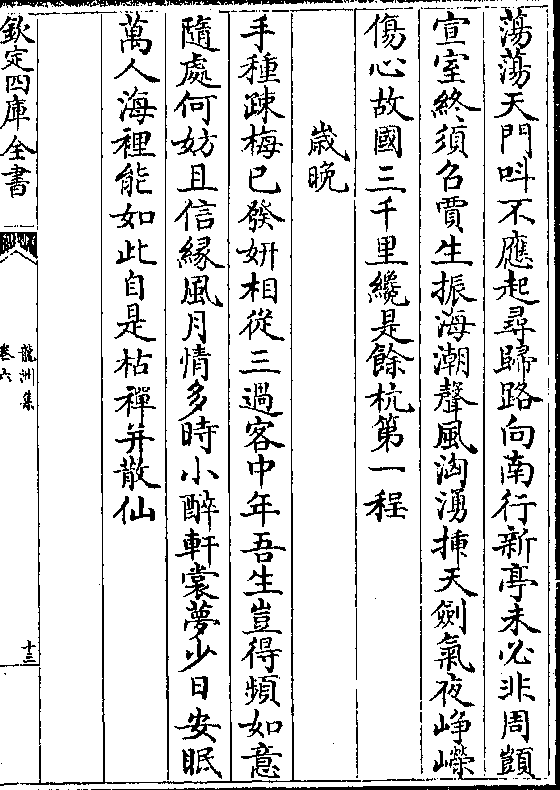 蕩蕩天門呌不應起尋歸路向南行新亭未必非周顗
宣室終須召賈生振海潮聲風洶湧揷天劍氣夜崢嶸
傷心故國三千里纔是餘杭第一程
歳晩
手種疎梅已發妍相從三過客中年吾生豈得頻如意
隨處何妨且信緣風月情多時小醉軒裳夢少日安眠
萬人海裡能如此自是枯禪并散仙
欽定四庫全書
龍洲集
卷六
十三